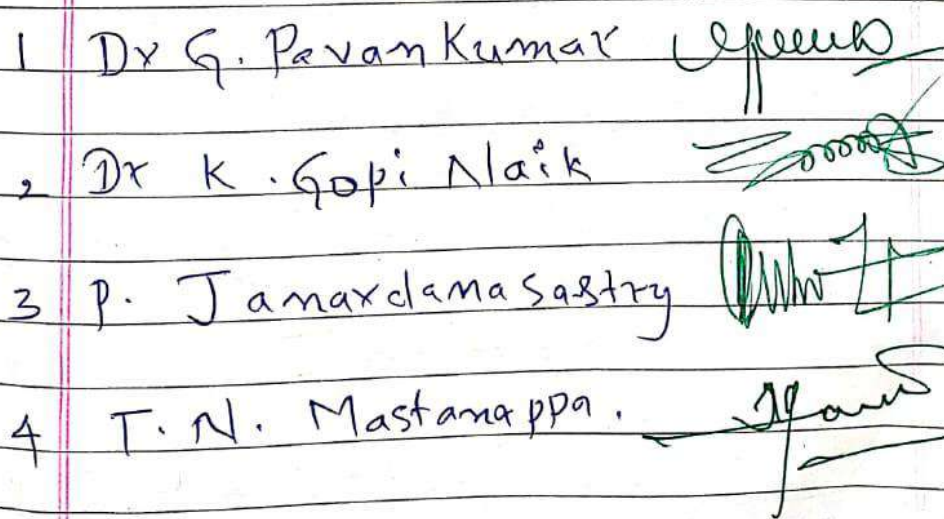 1 Dr G. Pavan Kumar
2 Dr K. Gopi Naik
3 P. Janardana Sastry
4 T. N. Mastanappa.